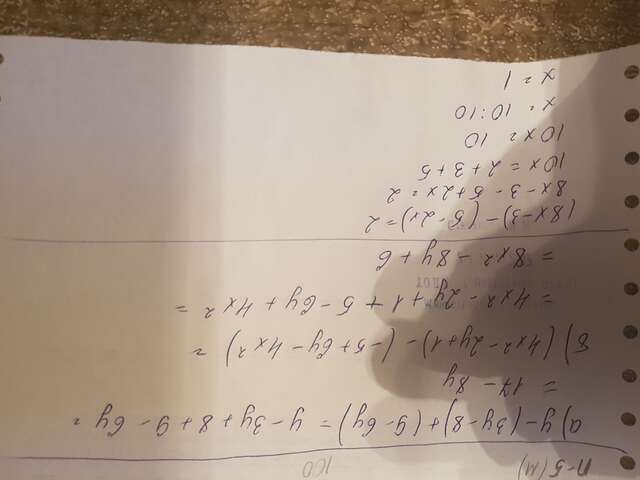 п-5 (М)
100
а) y-(3y-8)+(9-6y) = y-3y+8+9-6y =
= 17-8y
б) (4x²-2y+1)-(-5+6y-4x²) =
= 4x²-2y+1+5-6y+4x² =
= 8x²-8y+6
(8x-3)-(5-2x)=2
8x-3-5+2x=2
10x=2+3+5
10x=10
x=10:10
x=1